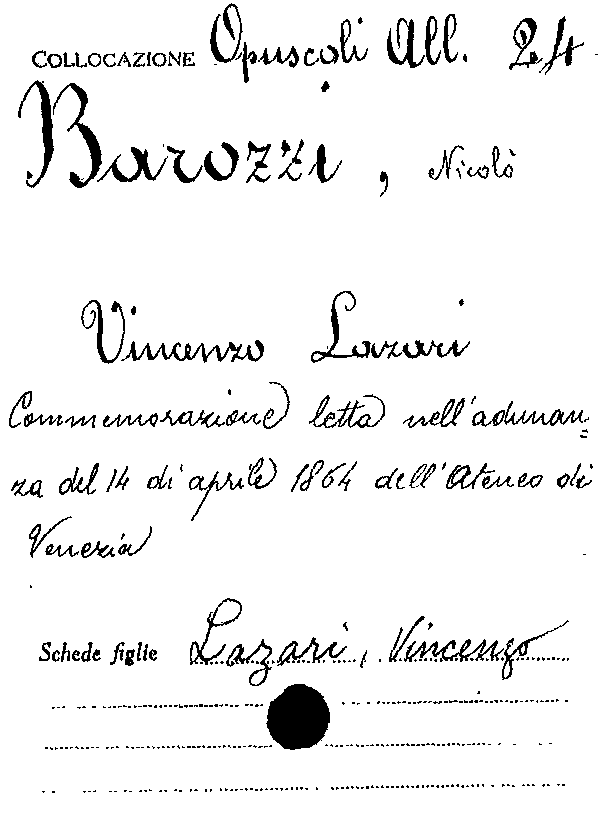 COLLOCAZIONE Opuscoli All. 24
Barozzi, Nicolò
Vincenzo Lazari
Commemorazione letta nell'adunan=
za del 14 di aprile 1864 dell'Ateneo di
Venezia
Schede figlie Lazari, Vincenzo